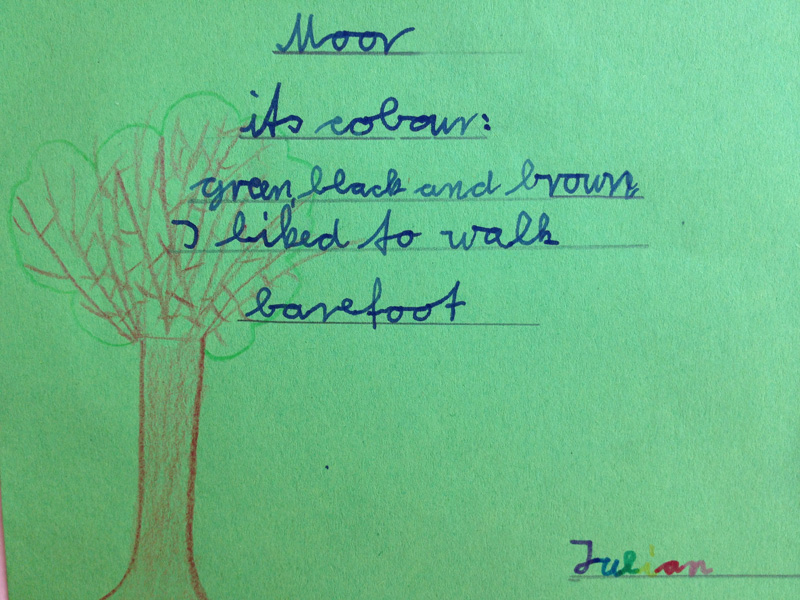 Moor
its colour:
green, black and brown
I liked to walk
barefoot
Julian